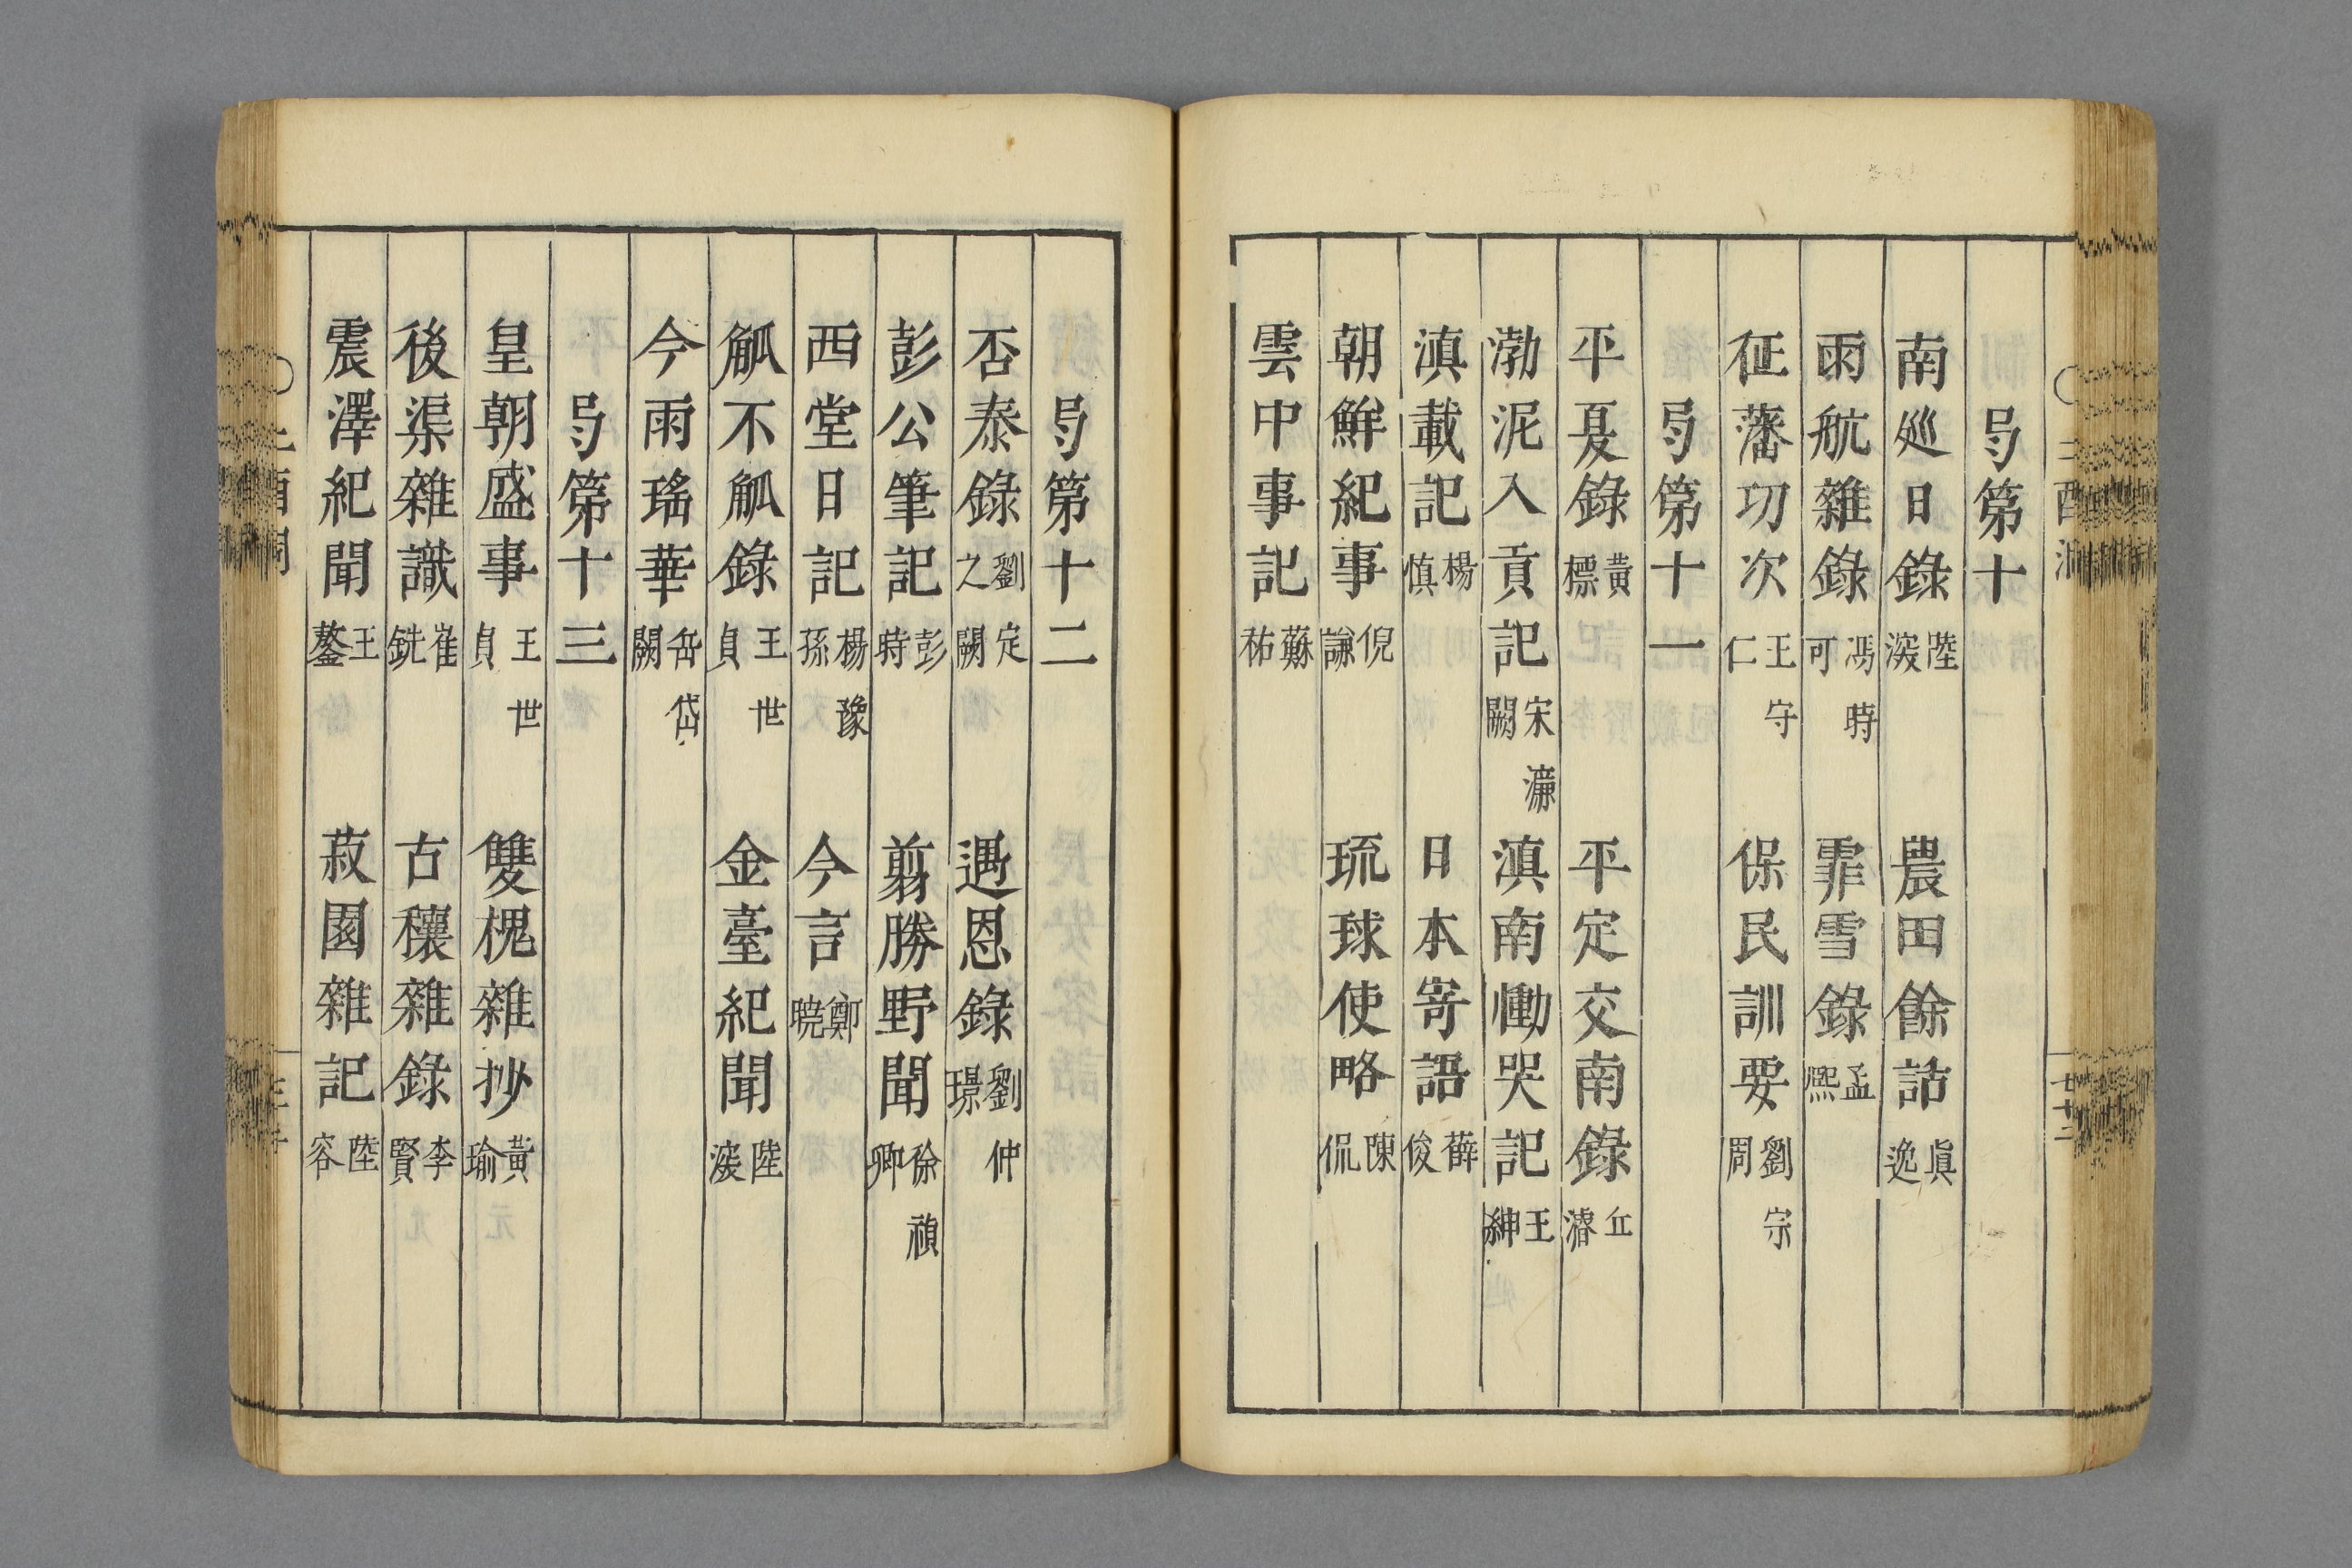 㢧第十
南廵日錄 陸深 農田餘話 眞逸
雨航雜錄 馮時可 霏雪錄 孟熈
征藩功次 王守仁 保民訓要 劉宗周
㢧第十一
平夏錄 黃標 平定交南錄 丘濬
渤泥入貢記 宋濂闕 滇南慟哭記 王紳
滇載記 楊慎 日本寄語 薛俊
朝鮮紀事 倪謙 琉球使略 陳侃
雲中事記 蘇祐
㢧第十二
否泰錄 劉定之闕 遇恩錄 劉仲璟
彭公筆記 彭時 翦勝野聞 徐禎卿
西堂日記 楊豫孫 今言 鄭曉
觚不觚錄 王世貞 金臺紀聞 陸深
今雨瑤華 岳岱闕
㢧第十三
皇朝盛事 王世貞 雙槐雜抄 黃瑜
後渠雜識 崔銑 古穰雜錄 李賢
震澤紀聞 王鏊 菽園雜記 陸容